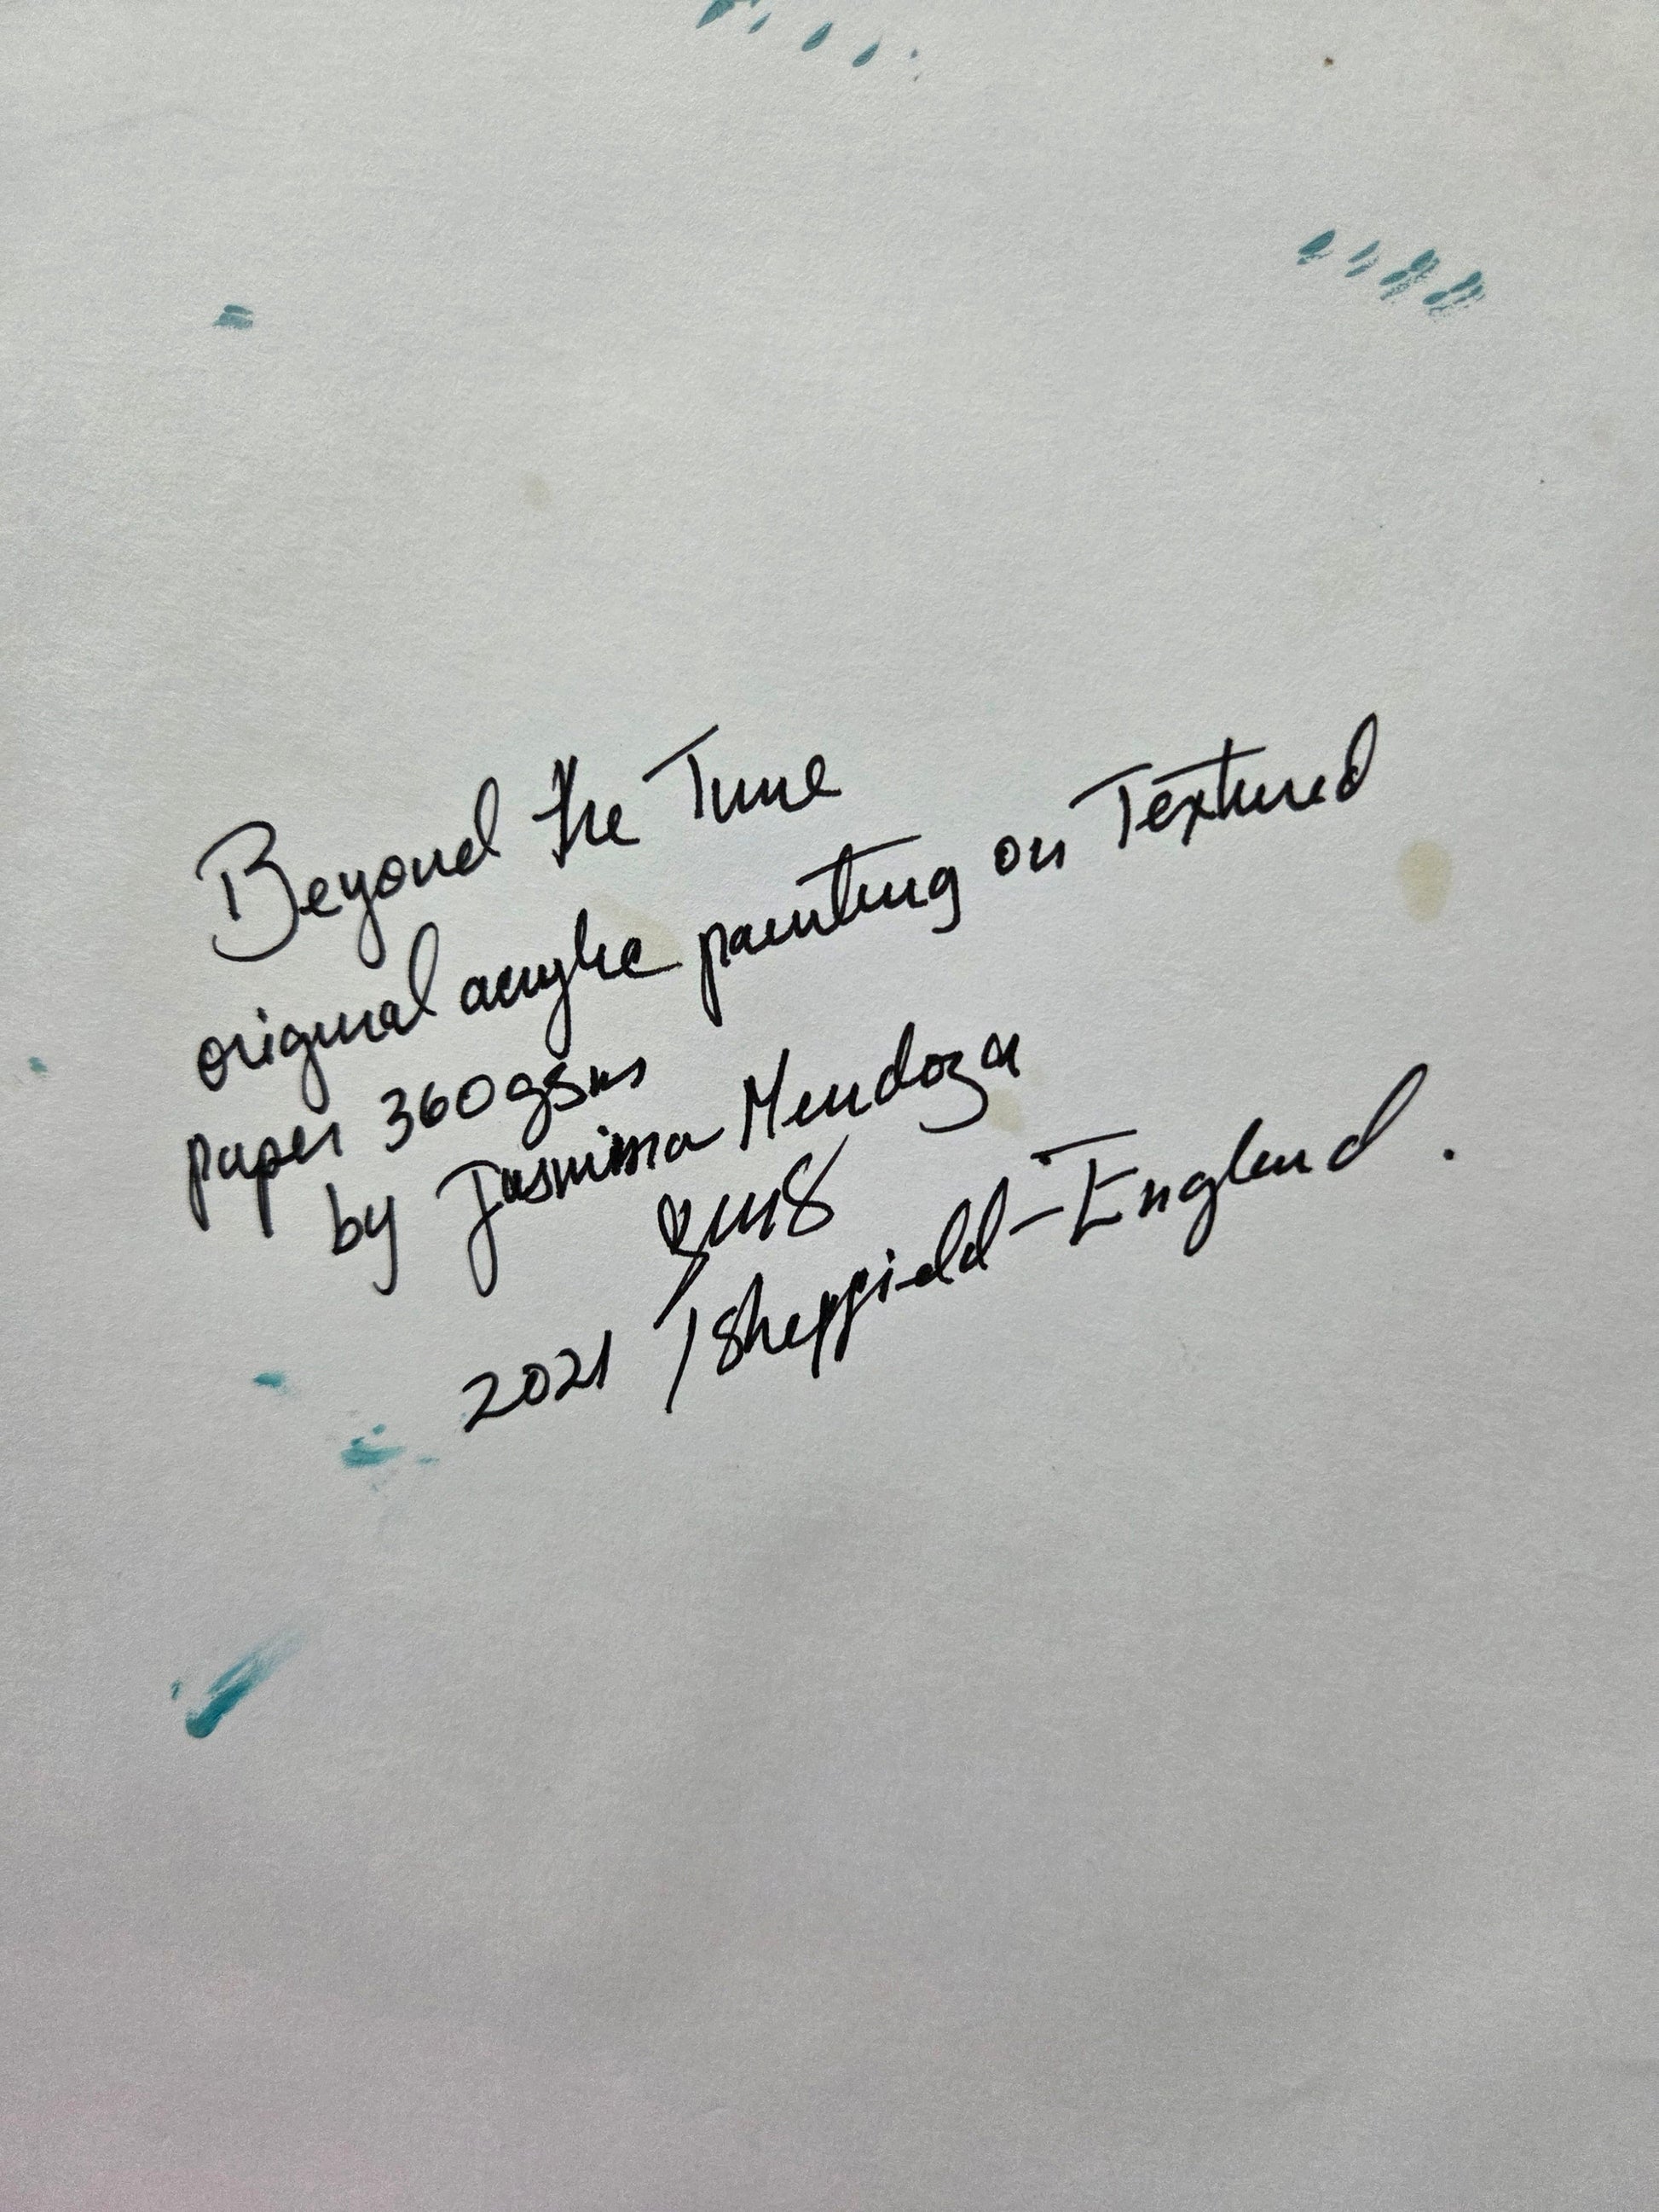 Beyond the Time
original acrylic painting on Textured
paper 360gsms
by Jasmina Mendoza
2021 / Sheffield - England.